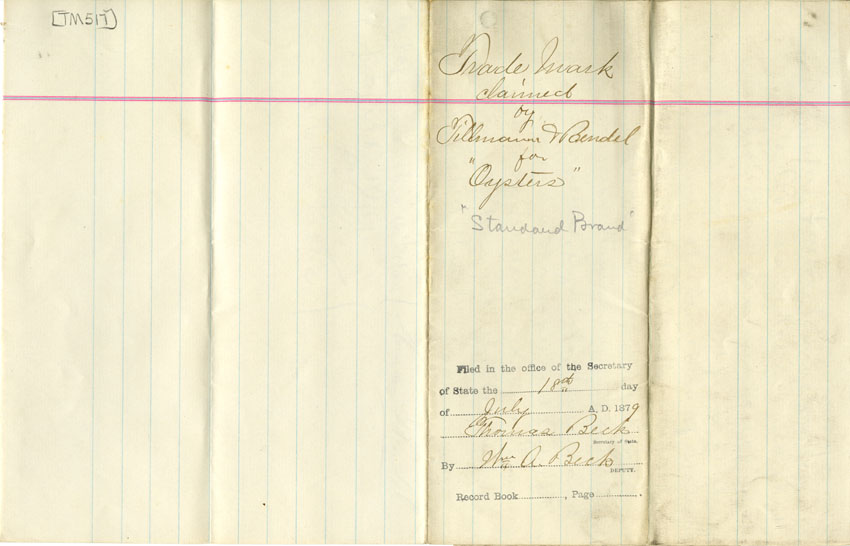 [TM517]
Trade Mark
claimed
by
Tillmann & Bendel
for
"Oysters"
"Standard Brand"
Filed in the office of the Secretary
of State the 18th day
of July A. D. 1879
Thomas Beck
Secretary of State.
By Wm A. Beck
DEPUTY.
Record Book , Page .